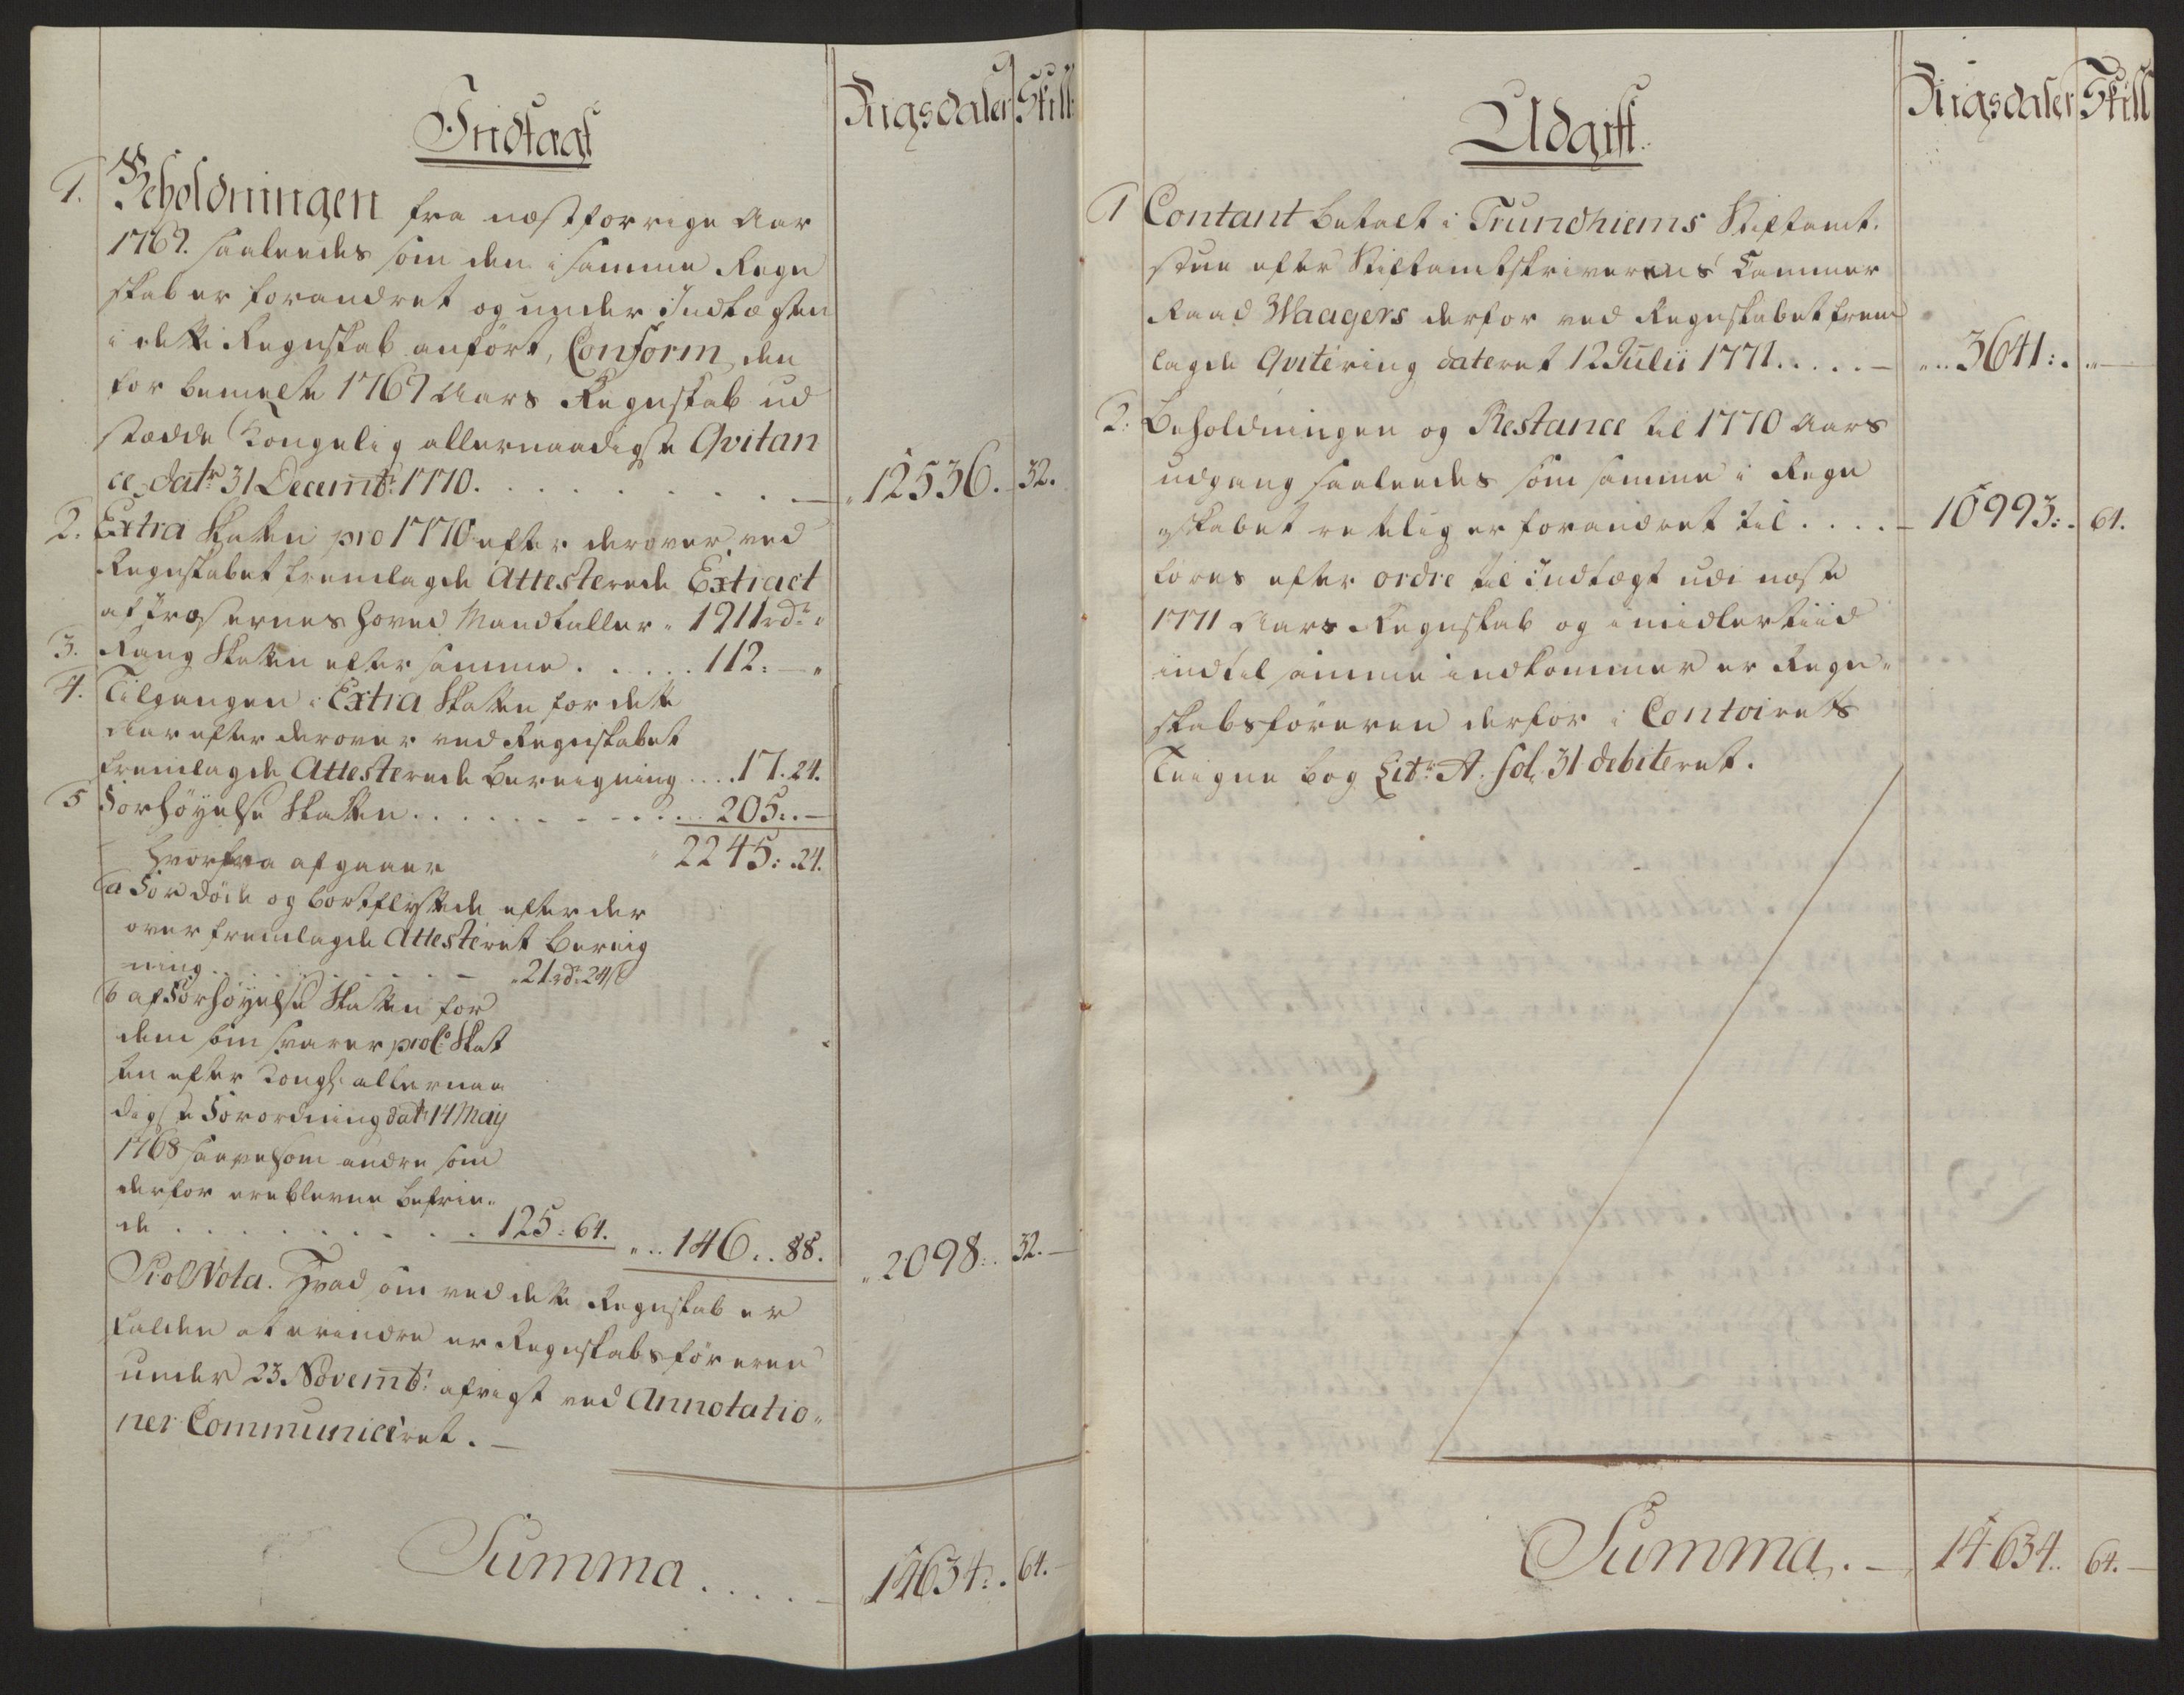 Indtægt
Rigsdaler Skill:
1. Beholdningen fra næstforrige Aar
1769. saaleedes som den i samme Regn
skab er forandret og under Indtægten
i dette Regnskab anført, Conform den
for bemelte 1769 Aars Regnskab ud
stædde Kongelig allernaadigste Qvitan
ce dat: 31 Decembr: 1770. . . . . . . . . 12536. 32.
2. Extra Skatten pro 1770 efter derover ved
Regnskabet fremlagde Attesterede Extract
af Præsternes Hoved Mandtaller 1911 rdr
3. Rang Skatten efter samme . . . . . 112: —
4. Tilgangen i Extra Skatten for dette
Aar efter derover ved Regnskabet
fremlagde Attesterede Beregning . . . . 17. 24.
5 Forhøyelse Skatten . . . . . . . . . . 205: . —
Hvorfra afgaaer 2245: 24.
a For døde og bortflyttede efter der
over fremlagde Attesteret Bereig
ning . . . . . . . — 21 rdr 24 s
b af Forhøyelse Skatten for
dem som svarer proC:o Skat
ten efter Kongl: allernaa
digste Forordning dat: 14 May
1768 saavelsom andre som
derfor ere blevne befrie-
de . . . . . . . . . 125: 64. 146. . 88. 2098: 32. —
NotaNota. Hvad som ved dette Regnskab er
falden at erindre er Regnskabsføreren
under 23 Novembr: afvigt ved Annotatio-
ner Communiceret. —
Summa . . . . — 14634: . 64. —
Udgift.
Rigsdaler Skill
1 Contant betalt i Trundhiems Stiftamt-
stue efter Stiftamtskriverens Cammer
Raad Waagers derfor ved Regnskabet frem
lagde Qvitering dateret 12 Julii 1771. . . . . — 3641: . —
2: Beholdningen og Restance til 1770 Aars
udgang saaleedes som samme i Regn
skabet rettelig er forandret til . . . . — 10993: . 64.
føres efter ordre til Indtægt udi næste
1771 Aars Regnskab og imidlertiid
indtil samme indkommer er Regn-
skabsføreren derfor i Contoirets
Teigne bog Litr: A. fol. 31 debiteret.
Summa. — 14634. . 64. —